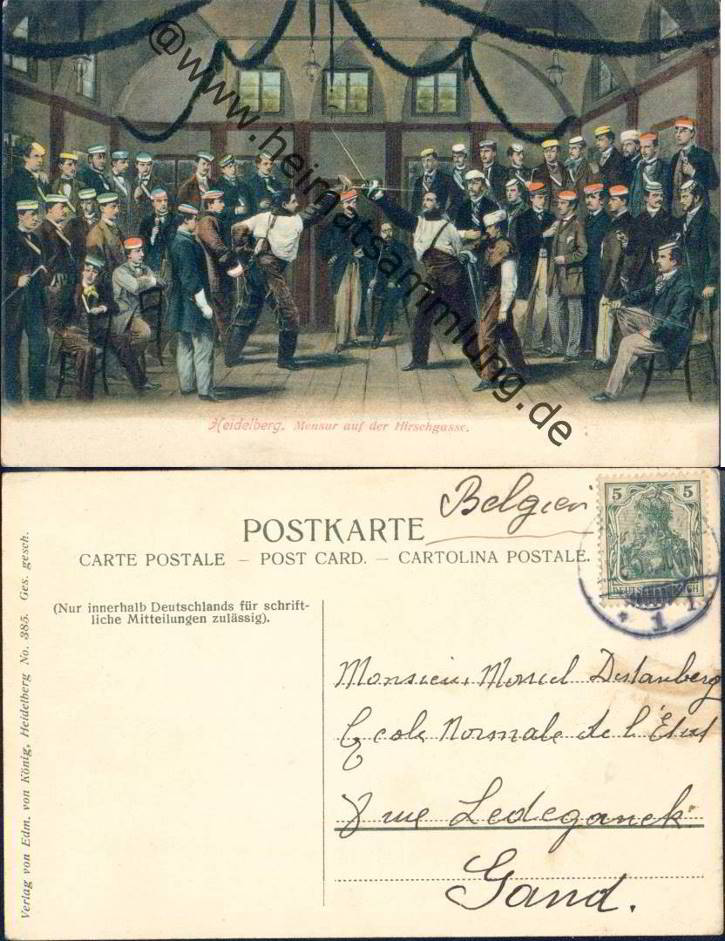 @www.heimatsammlung.de
Heidelberg. Mensur auf der Hirschgasse.
Belgien
POSTKARTE
CARTE POSTALE – POST CARD. – CARTOLINA POSTALE.
5 5
DEUTSCHES REICH
* 1
(Nur innerhalb Deutschlands für schrift-
liche Mitteilungen zulässig).
Monsieur Marcel
Ecole Normale de l'État
rue Ledeganck
Gand.
Verlag von Edm. von König, Heidelberg No. 385. Ges. gesch.